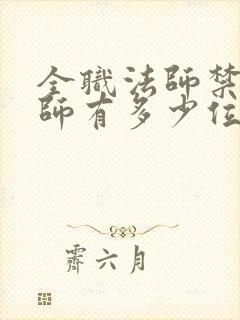 全職法師禁
師有多少位
霽六月